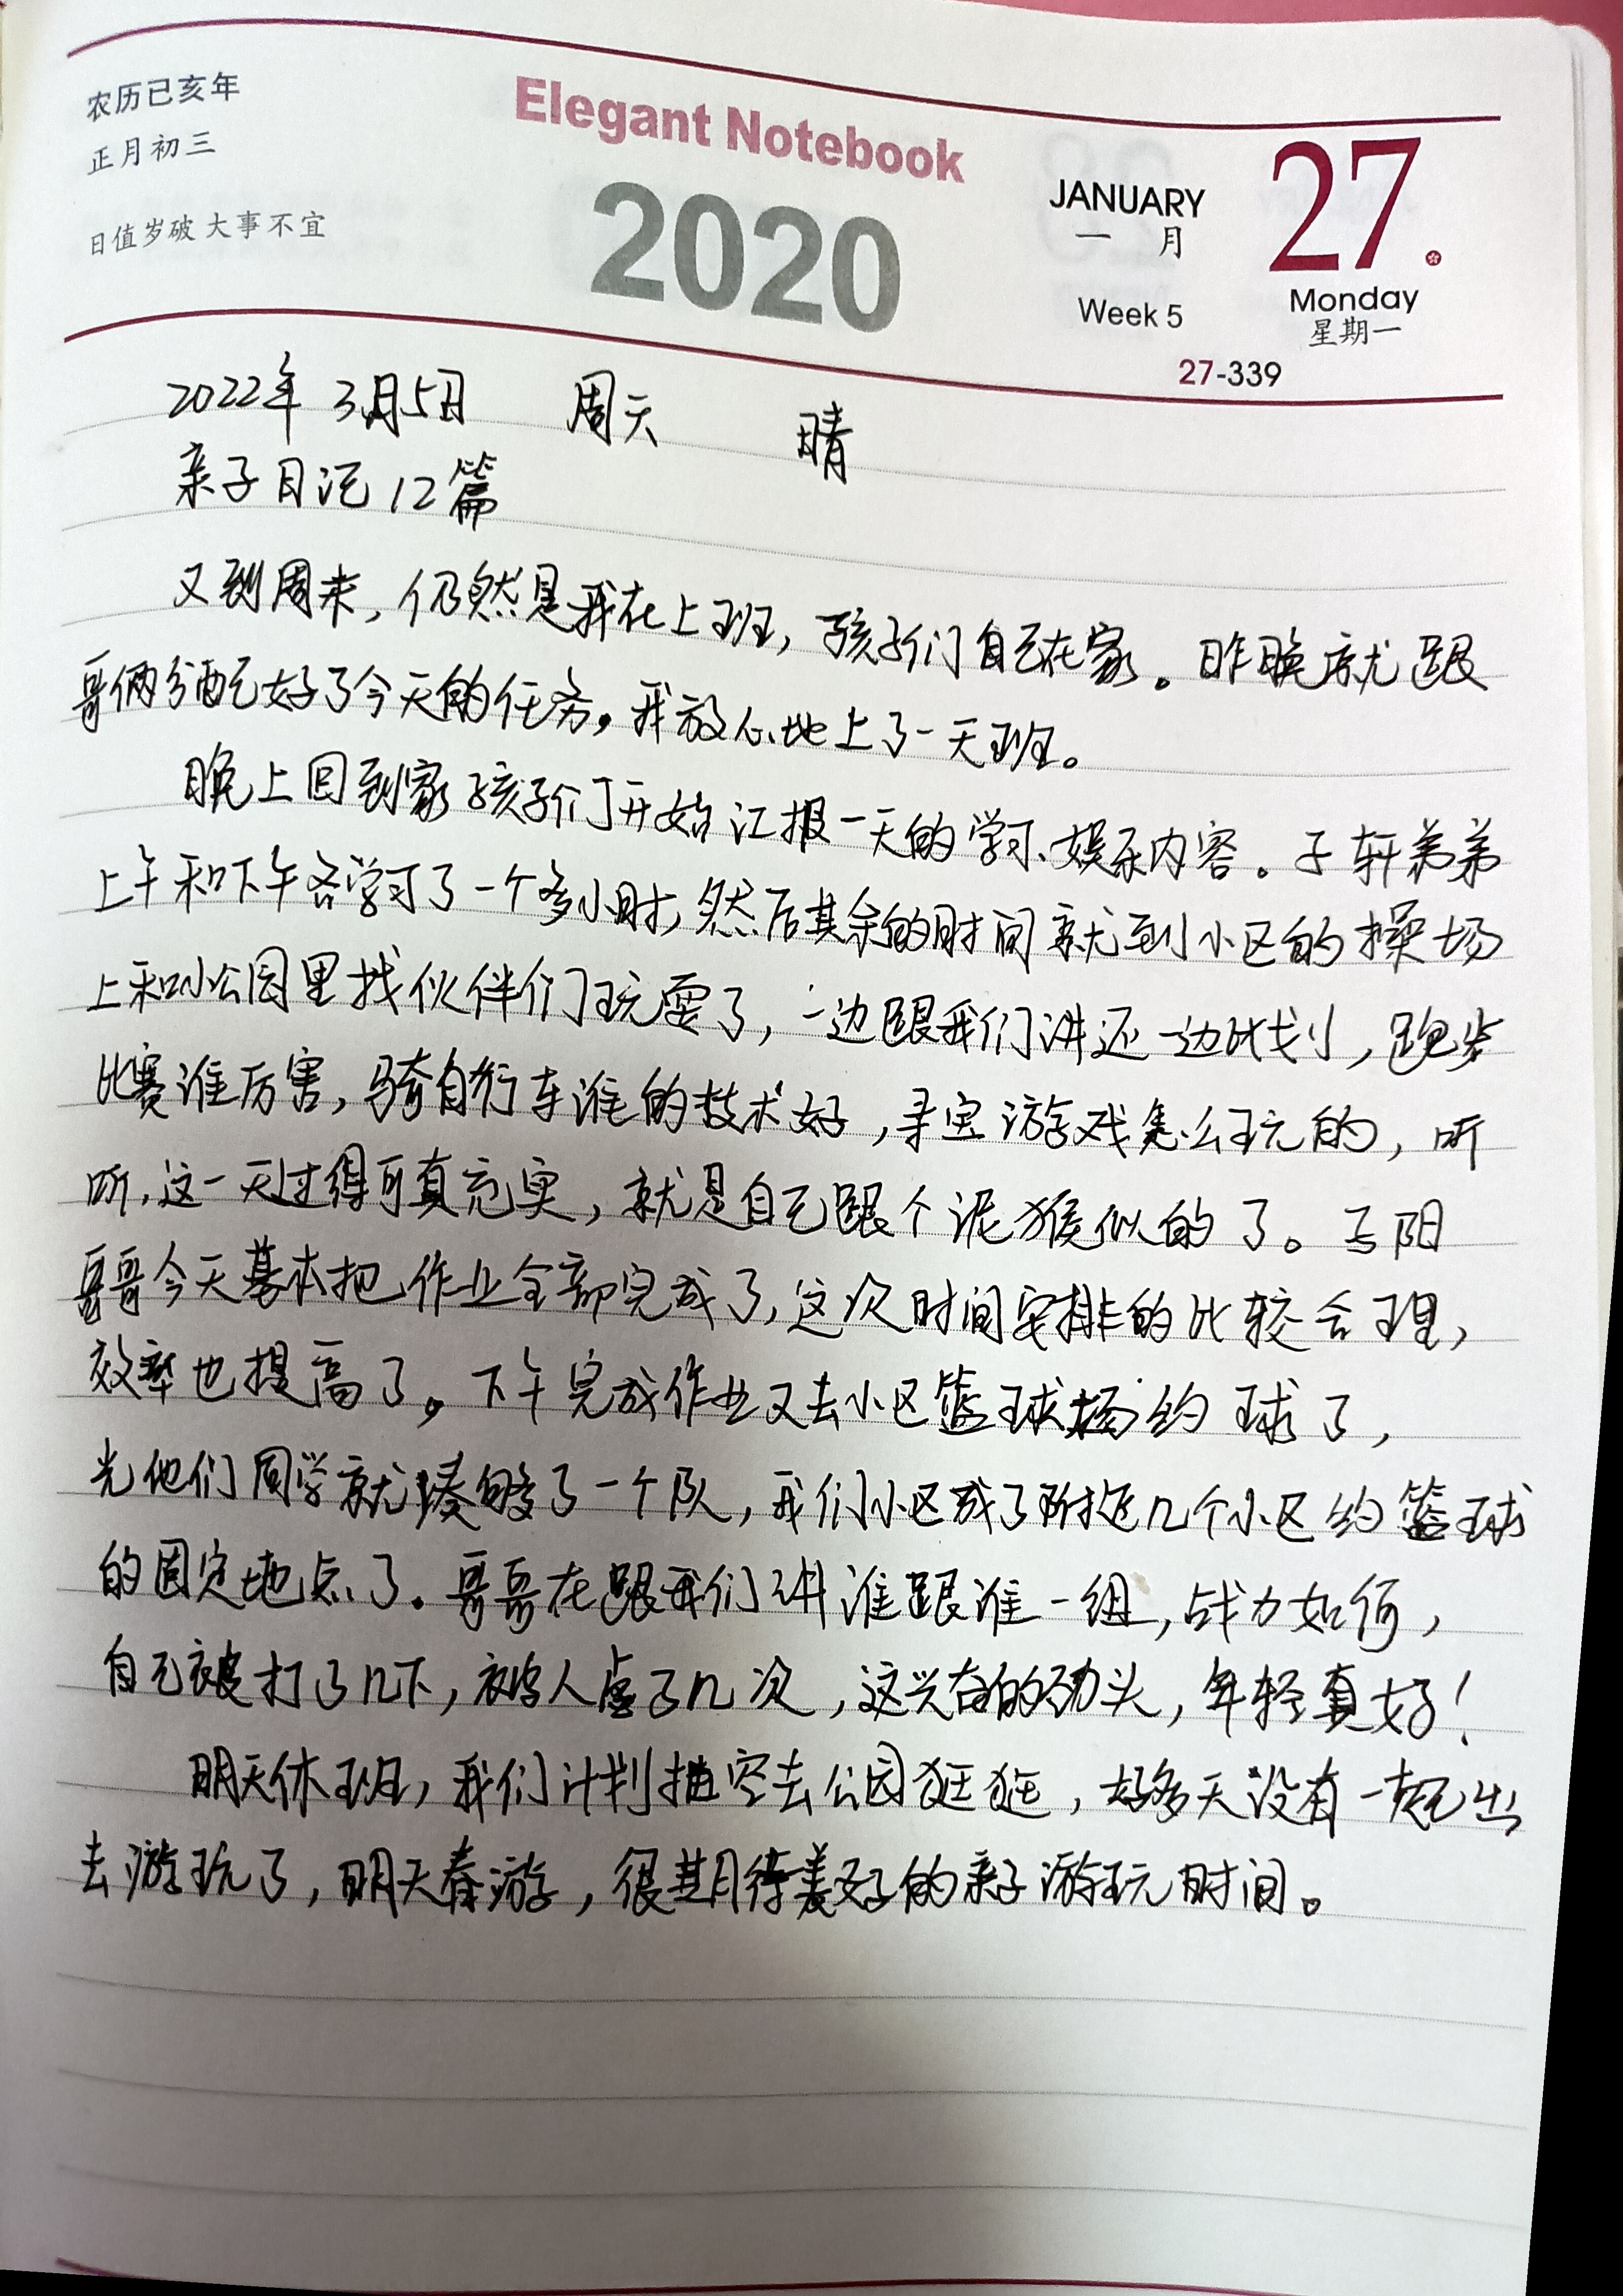 农历己亥年
正月初三
日值岁破 大事不宜
Elegant Notebook
2020
JANUARY
一 月
Week 5
27
Monday
星期一
27-339
2022年 3月5日 周天 晴
亲子日记12篇
又到周末，仍然是我在上班，孩子们自己在家。昨晚就跟
哥俩分配好了今天的任务，我放心地上了一天班。
晚上回到家孩子们开始汇报一天的学习、娱乐内容。子轩弟弟
上午和下午各学习了一个多小时，然后其余的时间就到小区的操场
上和小公园里找伙伴们玩耍了，一边跟我们讲还一边比划，跑步
比赛谁厉害，骑自行车谁的技术好，寻宝游戏怎么玩的，听
听，这一天过得可真充实，就是自己跟个泥猴似的了。子阳
哥哥今天基本把作业全部完成了，这次时间安排的比较合理，
效率也提高了。下午完成作业又去小区篮球场约球了，
光他们同学就凑够了一个队，我们小区成了附近几个小区约篮球
的固定地点了。哥哥在跟我们讲谁跟谁一组，战力如何，
自己被打了几下，被人虐了几次，这兴奋的劲头，年轻真好！
明天休班，我们计划抽空去公园逛逛，好多天没有一起出
去游玩了，明天春游，很期待美好的亲子游玩时间。